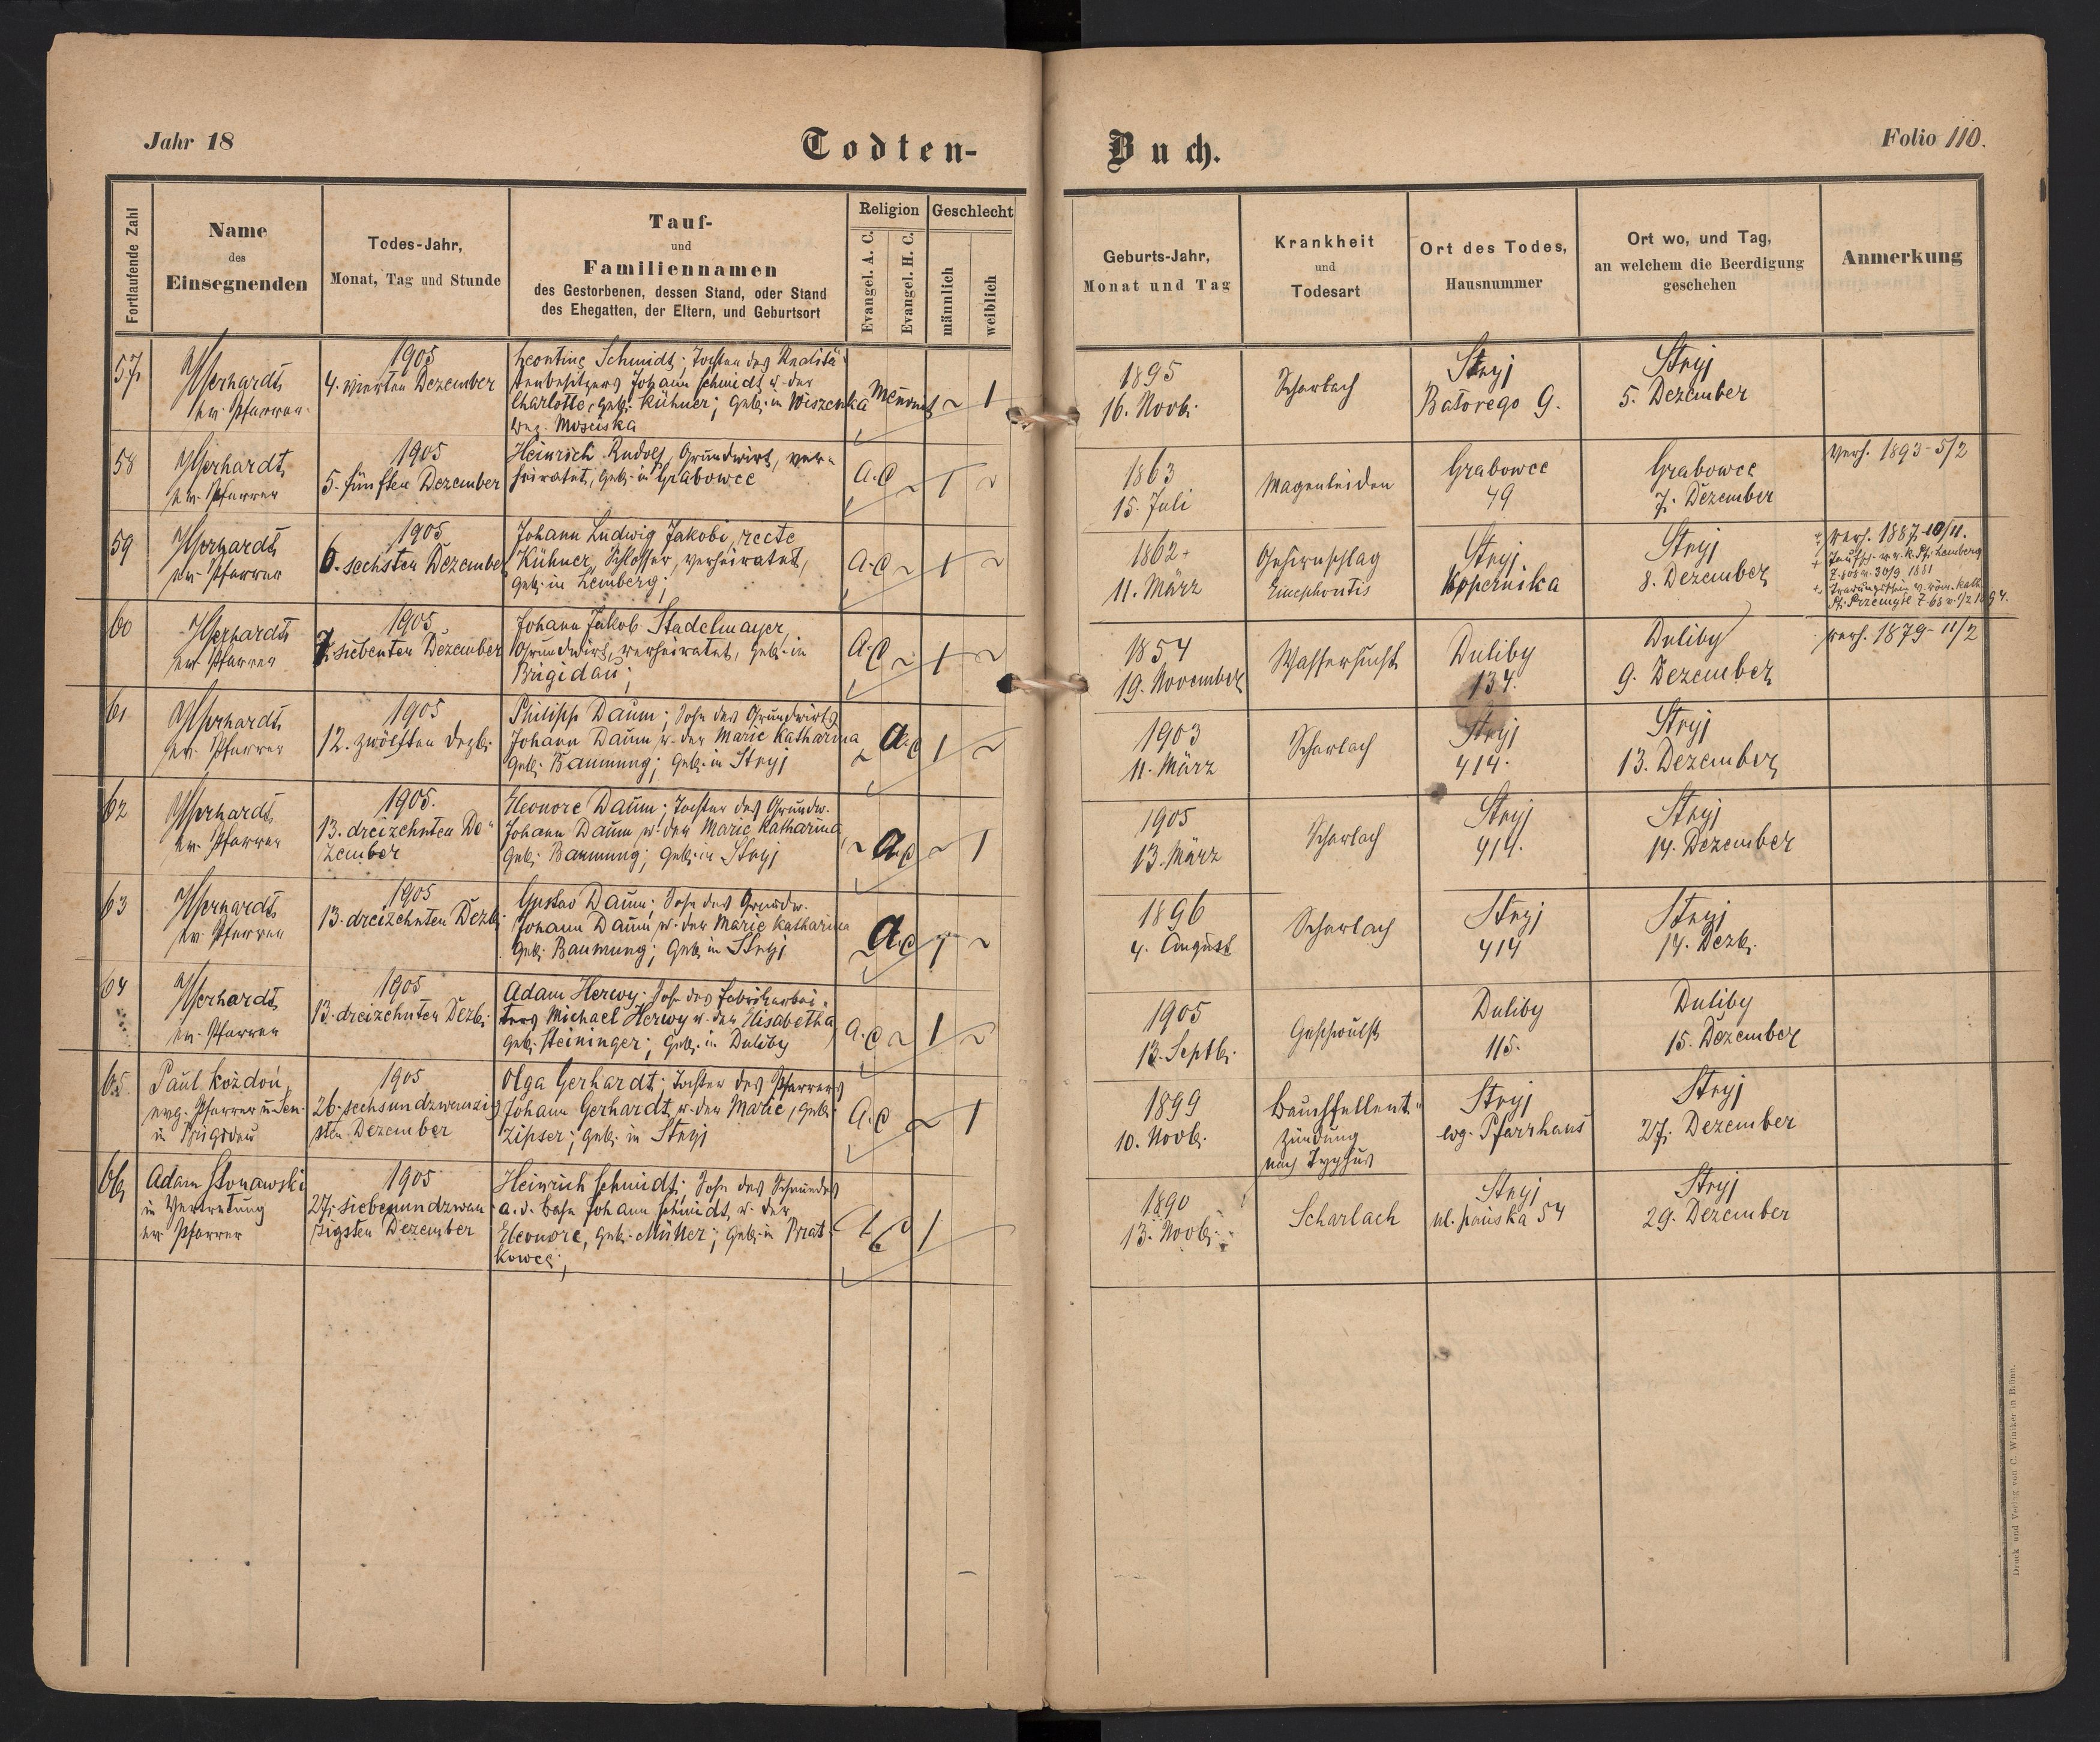 Jahr 18
Todten-
Buch.
Folio 110.
Fortlaufende Zahl
Name
des
Einsegnenden
Todes-Jahr,
Monat, Tag und Stunde
Tauf-
und
Familiennamen
des Gestorbenen, dessen Stand, oder Stand
des Ehegatten, der Eltern, und Geburtsort
Religion
Evangel. A. C.
Evangel. H. C.
Geschlecht
männlich
weiblich
Geburts-Jahr,
Monat und Tag
Krankheit
und
Todesart
Ort des Todes,
Hausnummer
Ort wo, und Tag,
an welchem die Beerdigung
geschehen
Anmerkung
57,
JGerhardt,
ev. Pfarrer.
1905
4. vierten Dezember
Leontine Schmidt; Tochter des Realitä-
tenbesitzers Johann Schmidt u. der
Charlotte, geb. Kühner; geb. in Wiszenka
bez. Mosciska
Mennonit ~ 1
1895
16. Novb.
Scharlach
Stryj
Batorego 9.
Stryj
5. Dezember
58
JGerhardt,
ev. Pfarrer
1905
5. fünften Dezember
Heinrich Rudolf, Grundwirt, ver-
heiratet, geb. in Grabowce
A.C ~ 1 ~
1863
15. Juli
Magenleiden
Grabowce
49
Grabowce
7. Dezember
verh. 1893 - 5/2
59
JGerhardt,
ev. Pfarrer
1905
6. sechsten Dezember
Johann Ludwig Jakobi, recte
Kühner, Schlosser, verheiratet,
geb. in Lemberg;
A.C ~ 1 ~
1862 +
11. März
Gehirnschlag
Stryj
Kopernika
Stryj
8. Dezember
+ verh. 1887 - 10/11.
60
JGerhardt,
ev. Pfarrer
1905
7. siebenten Dezember
Johann Jakob Stadelmayer,
Grundwirt, verheiratet, geb. in
Brigidau;
A.C ~ 1 ~
1854
19. November
Wassersucht
Duliby
134.
Duliby
9. Dezember
verh. 1879 - 11/2
61
JGerhardt,
ev. Pfarrer
1905
12. zwölften Dezb.
Philipp Daum; Sohn des Grundwirts
Johann Daum u. der Marie Katharina
geb. Baumung; geb. in Stryj
~ A.C 1 ~
1903
11. März
Scharlach
Stryj
414.
Stryj
13. Dezember
62
JGerhardt,
ev. Pfarrer
1905.
13. dreizehnten De-
zember
Eleonore Daum; Tochter des Grundw.
Johann Daum u. der Marie Katharina
geb. Baumung; geb. in Stryj
~ A.C ~ 1
1905
13. März
Scharlach
Stryj
414.
Stryj
14. Dezember
63
JGerhardt,
ev. Pfarrer
1905
13. dreizehnten Dezb.
Gustav Daum; Sohn des Grundw.
Johann Daum u. der Marie Katharina
geb. Baumung; geb. in Stryj
~ A.C 1 ~
1896
4. August
Scharlach
Stryj
414
Stryj
14. Dezb.
64
JGerhardt,
ev. Pfarrer
1905
13. dreizehnten Dezb.
Adam Herwy; Sohn des Fabrikarbei-
ters Michael Herwy u. der Elisabetha
geb. Steininger; geb. in Duliby
A.C ~ 1 ~
1905
13. Septb.
Geschwulst
Duliby
115.
Duliby
15. Dezember
65.
Paul Kożdoń,
evg. Pfarrer u. Sen.
in Brigidau
1905
26. sechsundzwanzig-
sten Dezember
Olga Gerhardt; Tochter des Pfarrers
Johann Gerhardt u. der Marie, geb.
Zipser; geb. in Stryj
A.C ~ 1
1899
10. Novb.
Bauchfellent-
zündung
nach Typhus
Stryj
evg. Pfarrhaus
Stryj
27. Dezember
66,
Adam Stonawski
in Vertretung
ev. Pfarrer
1905
27. siebenundzwan-
zigsten Dezember
Heinrich Schmidt; Sohn des
a. d. Bahn Johann Schmidt u. der
Eleonore, geb. Müller; geb. in Brat-
kowce;
1
1890
13. Novb.
Scharlach
Stryj
ul. 54
Stryj
29. Dezember
Druck und Verlag von C. Winiker in Brünn.